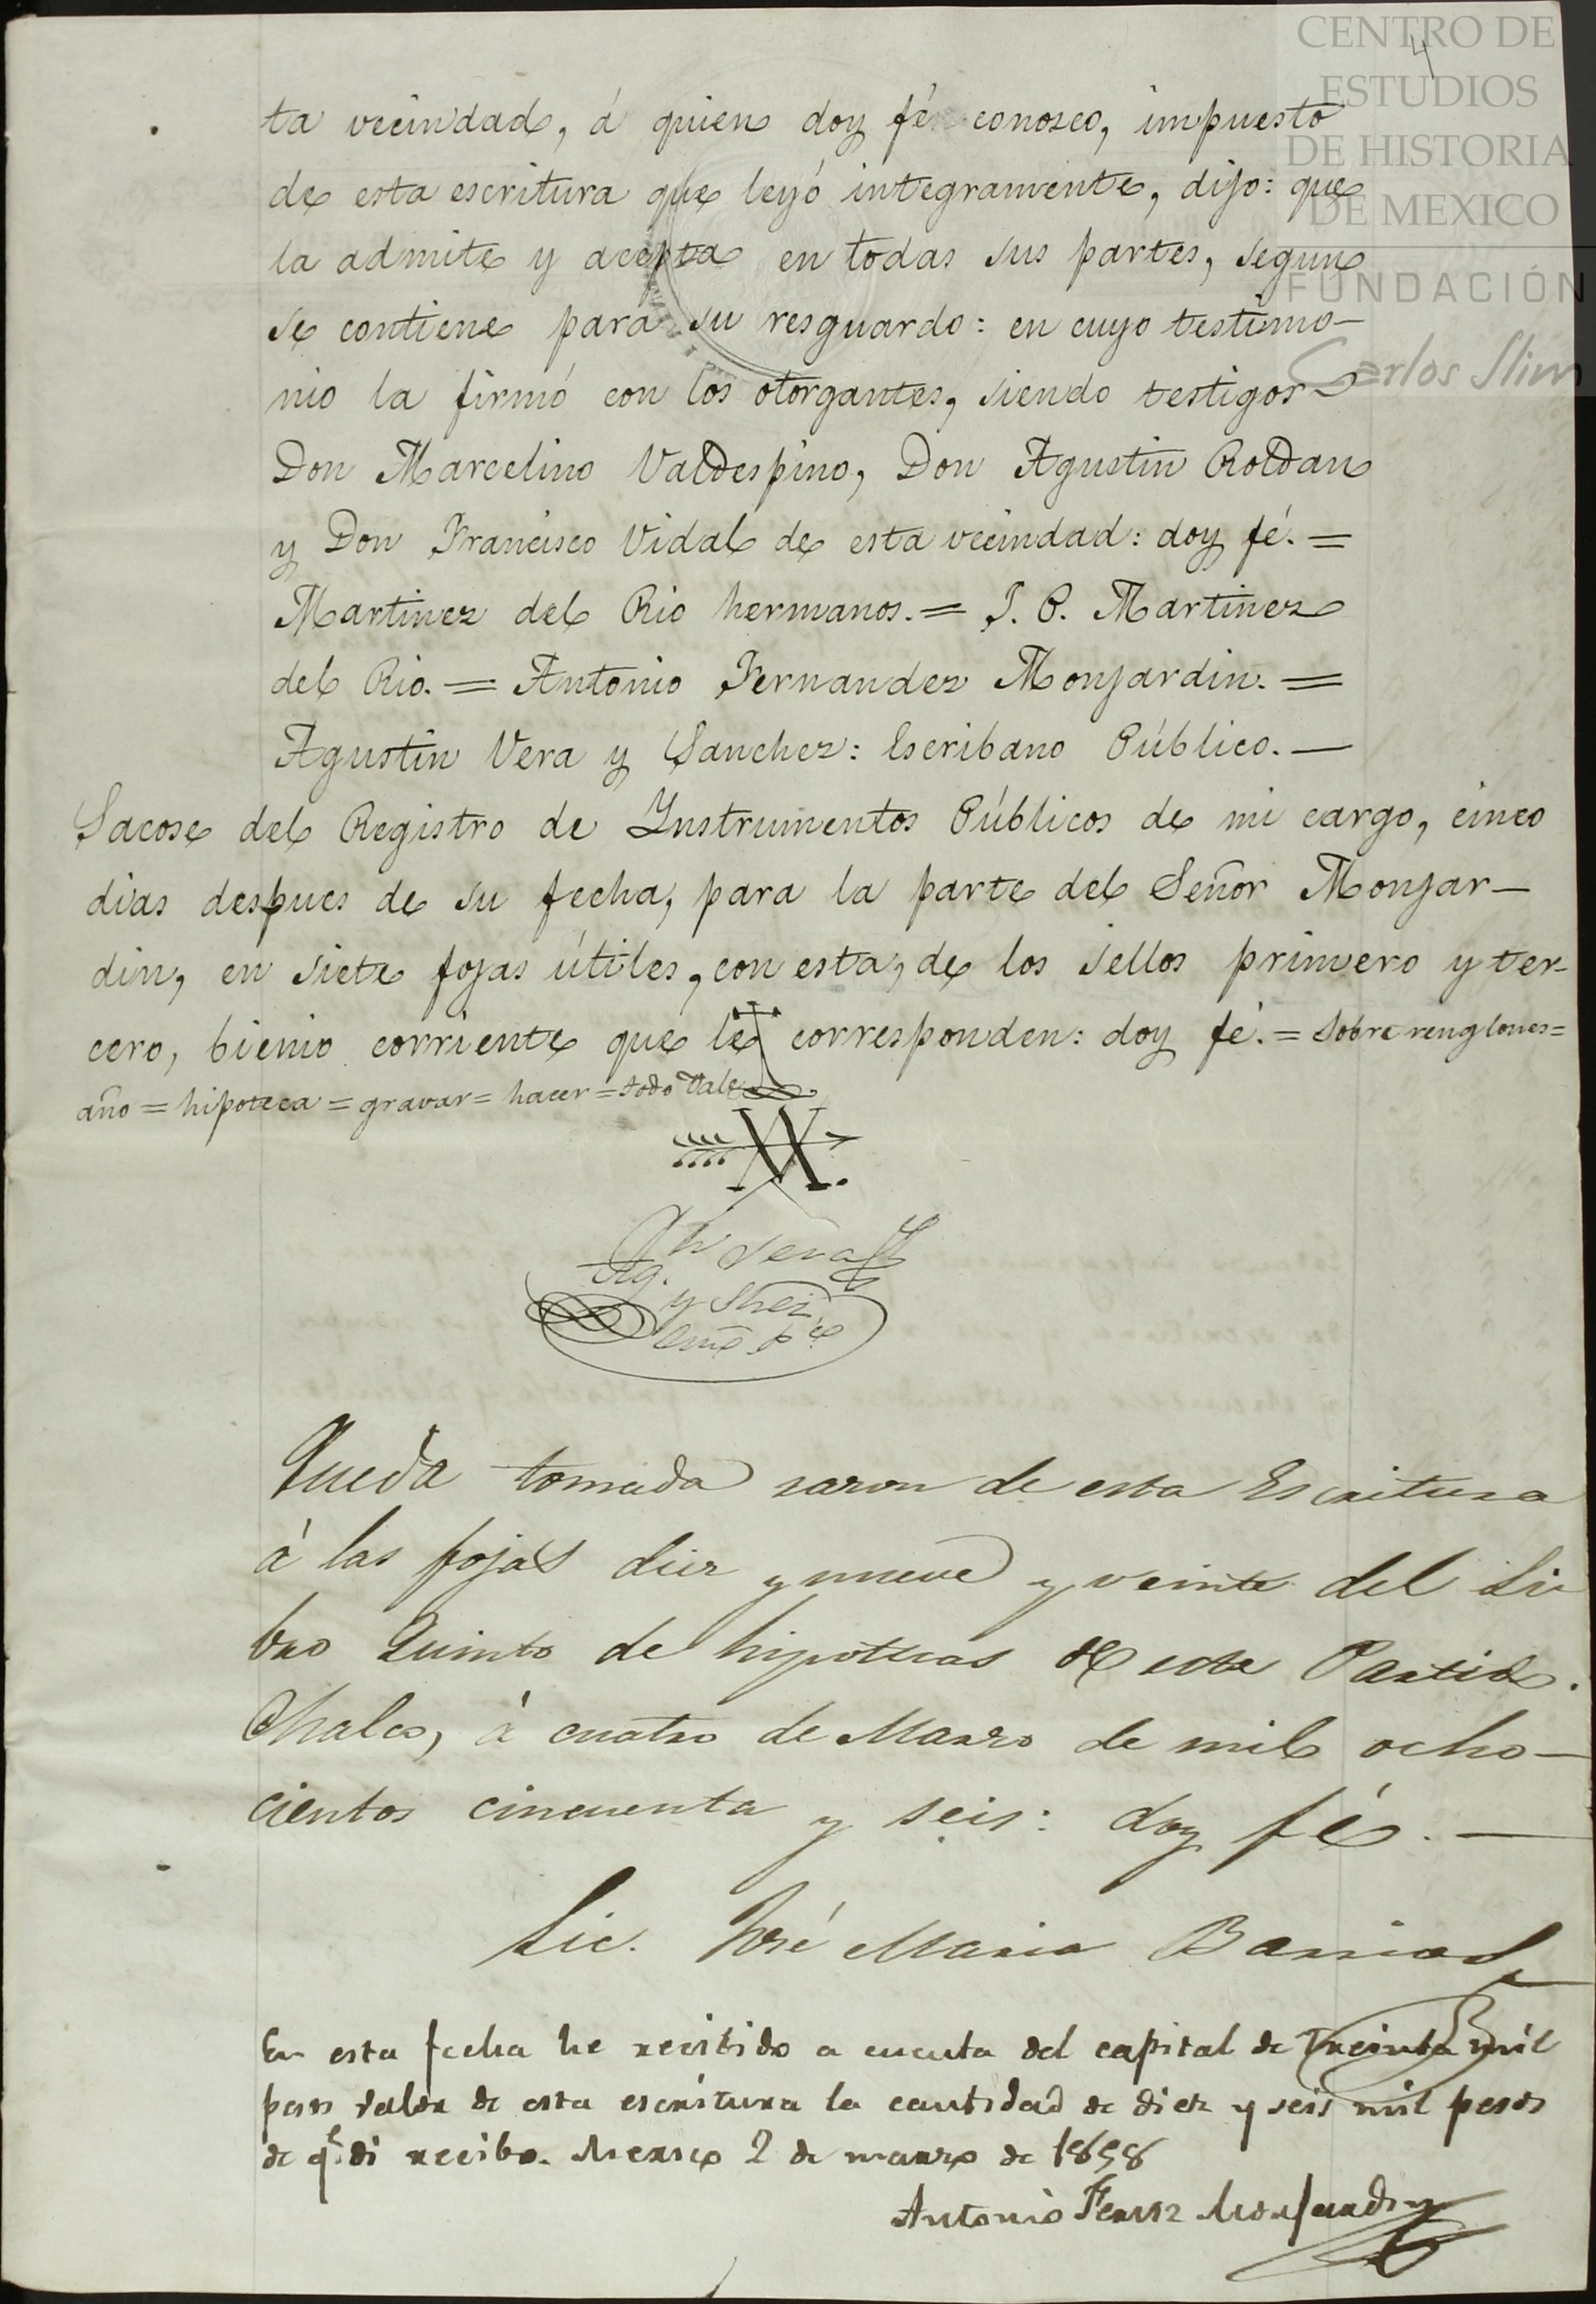 4
CENTRO DE
ESTUDIOS
DE HISTORIA
DE MEXICO
FUNDACIÓN
Carlos Slim
ta vecindad, á quien doy fé conosco, impuesto
de esta escritura que leyó integramente, dijo: que
la admite y acepta en todas sus partes, segun
se contiene para su resguardo: en cuyo testimo-
nio la firmó con los otorgantes, siendo testigos
Don Marcelino Valdespino, Don Agustin Roldan
y Don Francisco Vidal de esta vecindad: doy fé. =
Martinez del Rio hermanos. = J. P. Martinez
del Rio. = Antonio Fernandez Monjardin. =
Agustin Vera y Sanchez: Escribano Público. —
Sacose del Registro de Ynstrumentos Públicos de mi cargo, cinco
dias despues de su fecha, para la parte del Señor Monjar-
din, en siete fojas útiles, con esta, de los sellos primero y ter-
cero, bienio corriente que le corresponden: doy fé. = Sobre renglones =
año = hipoteca = gravar = hacer = todo vale
Ag. Vera
y Shez
Queda tomada razon de esta Escritura
á las fojas diez y nueve y veinte del Li
bro Quinto de hipotecas de este Partido.
Chalco, á cuatro de Marzo de mil ocho-
cientos cincuenta y seis: doy fé. —
Lic. José Maria Barrios
En esta fecha he recibido a cuenta del capital de treinta mil
pesos valor de esta escritura la cantidad de diez y seis mil pesos
de qe. di recibo. Mexico 2 de marzo de 1858
Antonio Fernz Monjardin